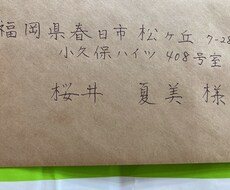 福岡県春日市松ヶ丘7-28
小久保ハイツ408号室
桜井 夏美様